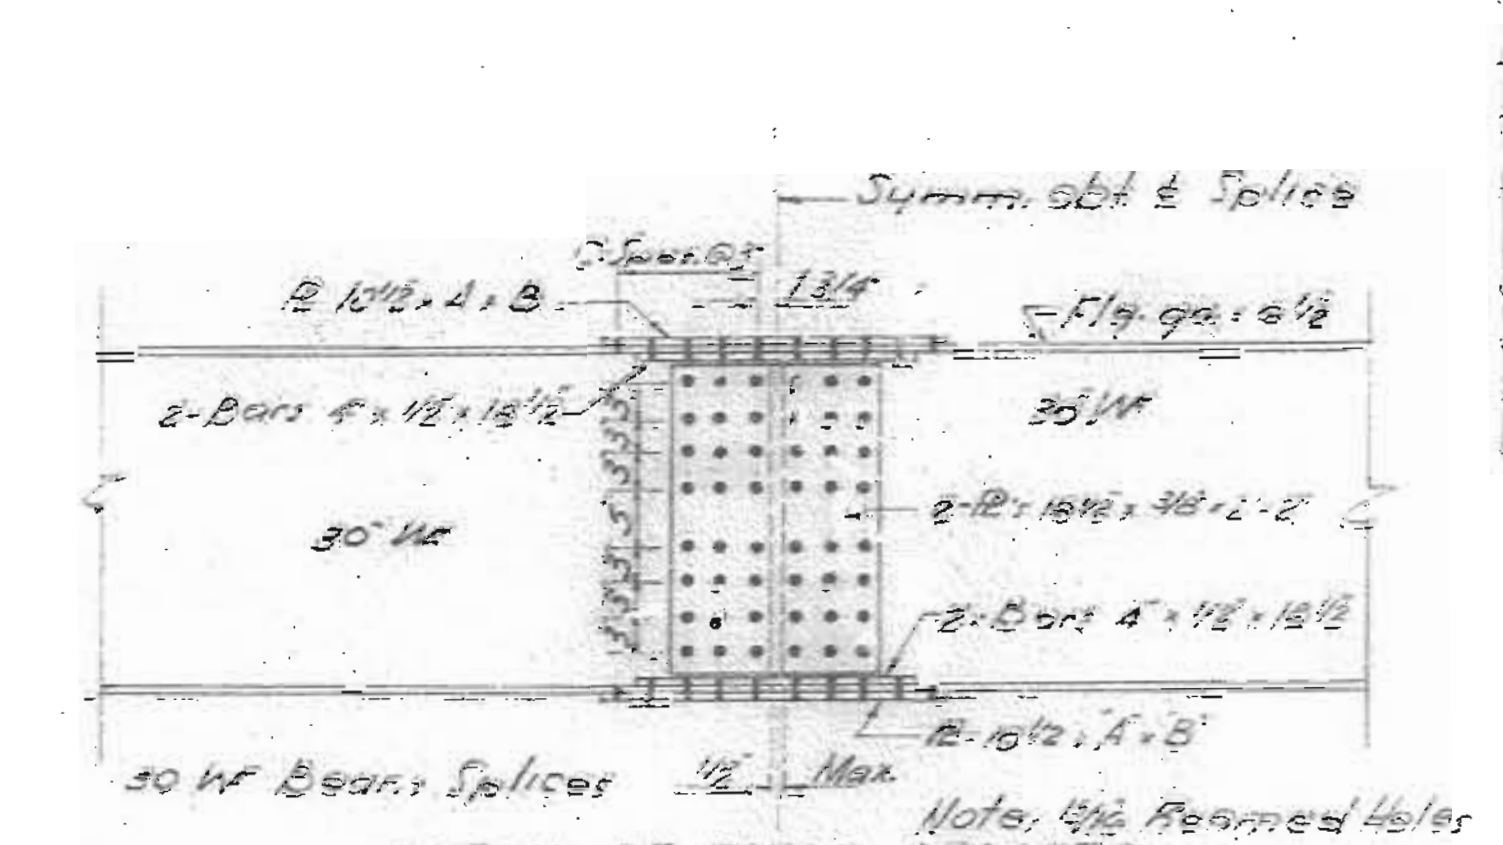 Symm. abt ℄ Splice
"C" Spcs. @ 3"
1 3/4"
PL 10 1/2" x A x B
Flg. ga. = 6 1/2"
2-Bars 4" x 1/2" x 18 1/2"
30" WF
3"
3"
3"
5"
3"
3"
3"
30" WF
2-PLs 18 1/2" x 3/8" x 2'-2"
2-Bars 4" x 1/2" x 18 1/2"
PL-10 1/2" x "A" x "B"
30 WF Beam Splices
1/2" Max.
Note: 15/16 Reamed Holes